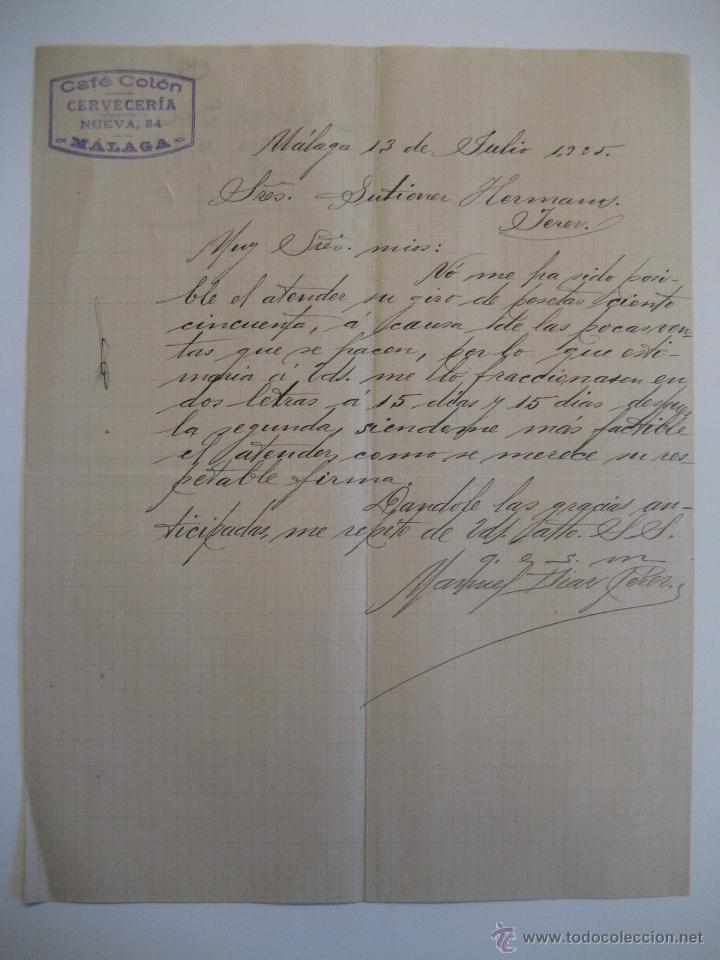 Café Colón
CERVECERÍA
NUEVA, 84
MÁLAGA
Málaga 13 de Julio 1.905.
Srēs. Gutierrer Hermanos.
Jerez.
Muy Srēs. mios:
Nó me ha sido posi-
ble el atender su giro de pesetas ciento
cincuenta, á causa de las pocas ven-
tas que se hacen, por lo que esti-
maria á Vds. me lo fraccionasen en
dos letras á 15 dias y 15 dias despues
la segunda, siendome mas factible
el atender, como se merece su res-
petable firma.
Dandole las gracias an-
ticipadas, me repito de Vds. atto. S.S.
q. e. s. m
Manuel Diaz Perez
todocoleccion
www.todocoleccion.net